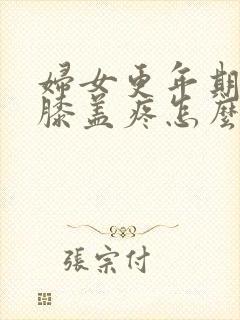 婦女更年期
膝盖疼怎麽
張宗付